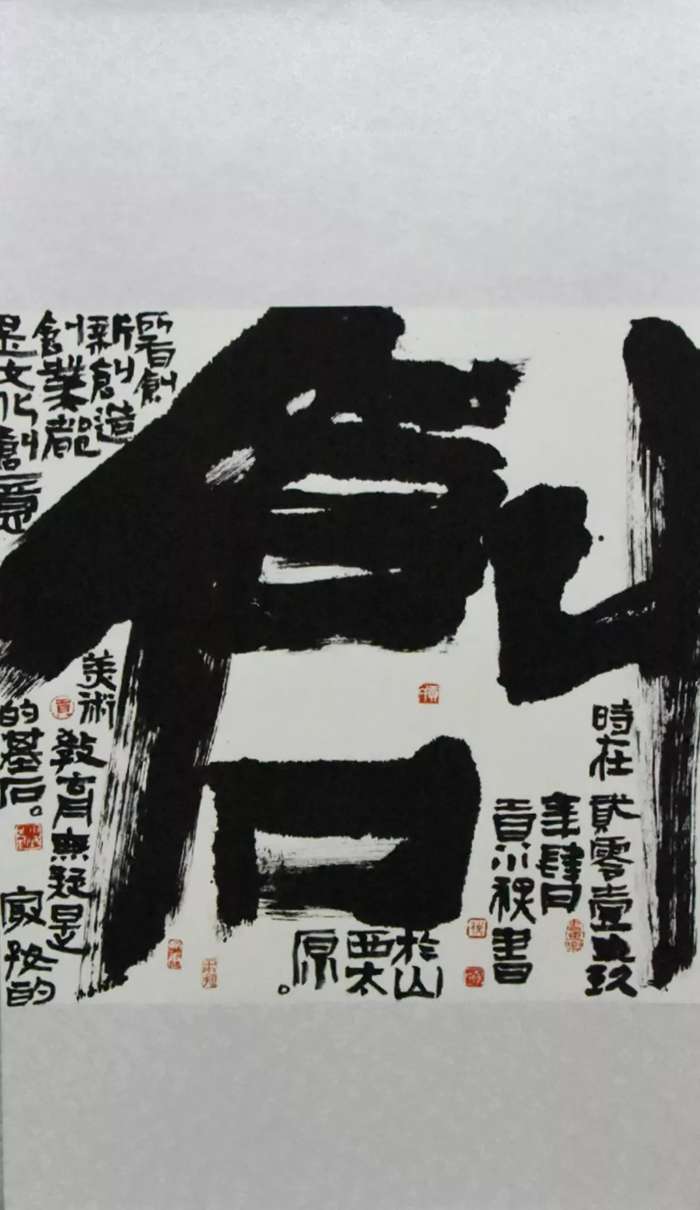 創
所有創
新創造
創業都
是文化創意
美術
教育無疑是
的
的基石。
時在
貳零壹玖
年肆月
貢小書
於山
西太
原。